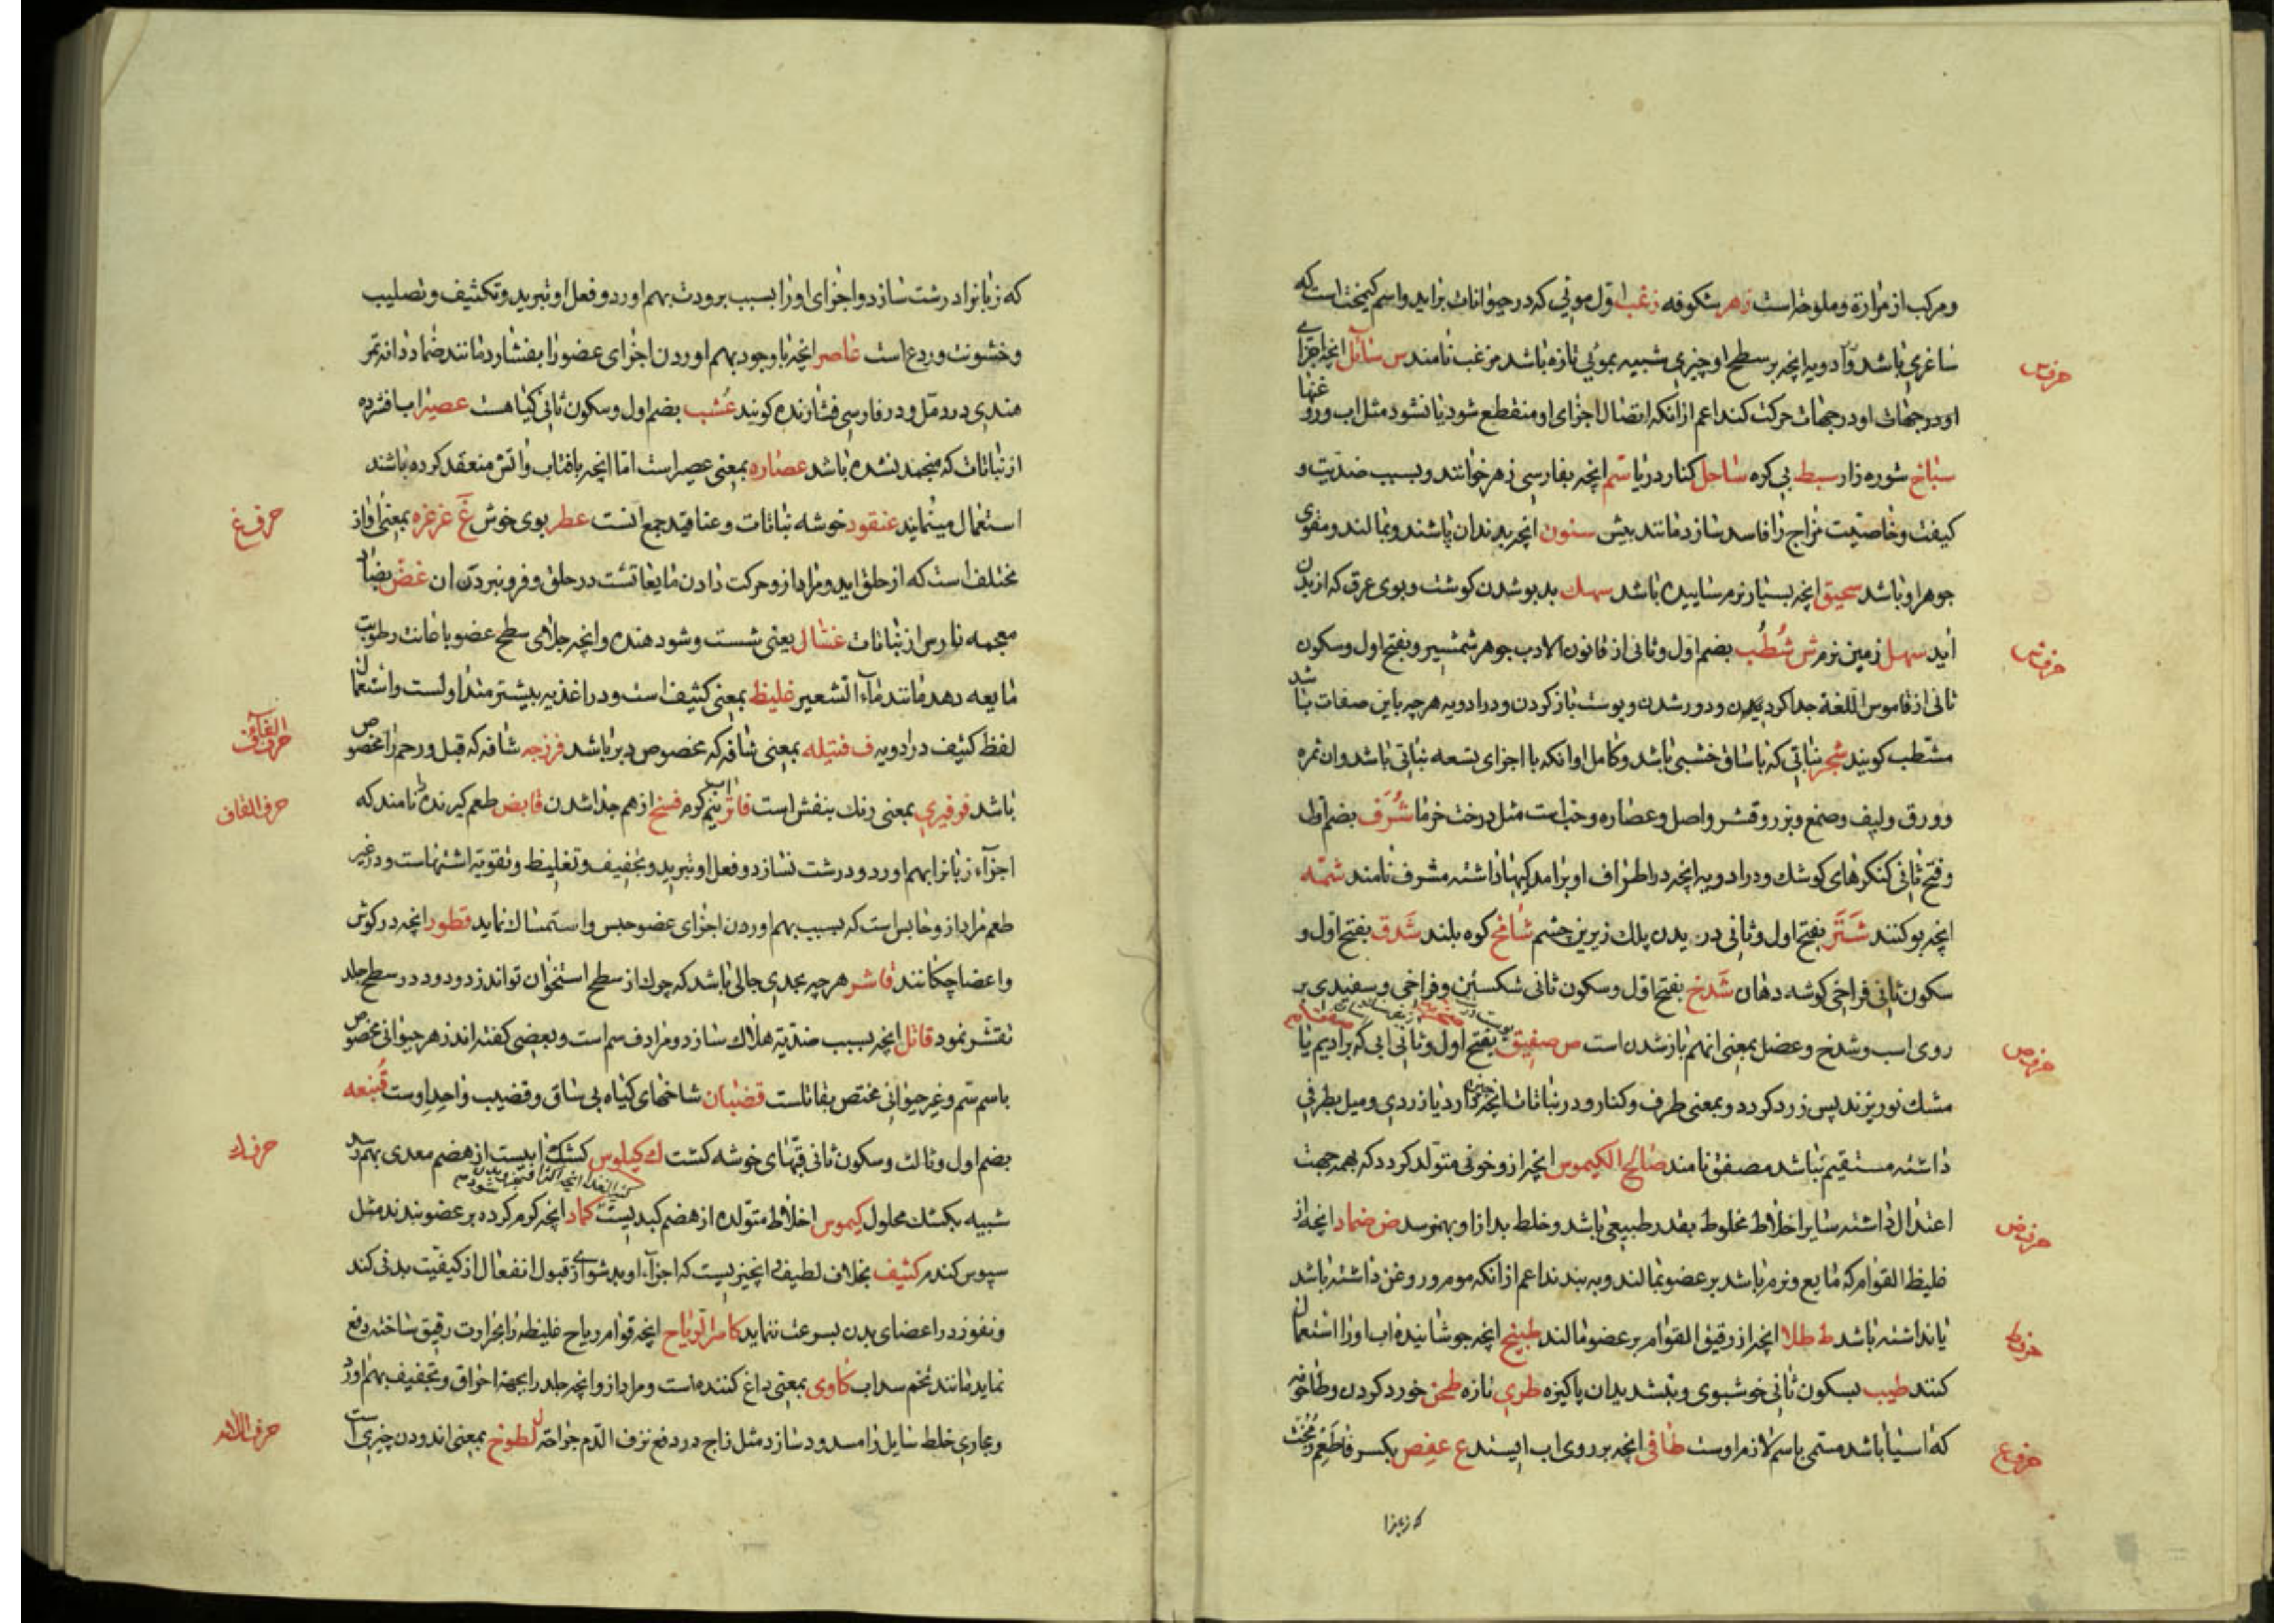 ومرکب از مرارة وملوحة است زهر شکوفه زغب اول موئی که در حیوانات براید واسم کیمخت است که
ساغری باشد و ادویه انچه بر سطح او چیزی شبیه بموئی تازه باشد مزغب نامند س سائل انچه اجزای
حرف س
او در جهات حرکت کند اعم از انکه اتصال اجزای او منقطع شود یا نشود مثل اب وروغنها
سباخ شوره زار سبط بی کره ساحل کنار دریا سم انچه بفارسی زهر خوانند وبسبب ضدیت و
کیفت وخاصیت مزاج را فاسد سازد مانند بیش سنون انچه بدندان پاشند ونمالند ومقوی
جوهر او باشد سحیق انچه بسیار نرم ساییده باشد سهك بدبو شدن کوشت وبوی عرق که از بدن
اید سهل زمین نرم ش شُطُب بضم اول وثانی از قانون الادب جوهر شمشیر وبفتح اول وسکون
حرف ش
ثانی از قاموس اللغة جدا کردیدن ودور شدن وپوست باز کردن ودر ادویه هرچه باین صفات باشد
مشطب کویند شجر نباتی که با ساق خشبی باشد وکامل او انکه با اجزای تسعه نباتی باشد وان ثمره
وورق ولیف وصمغ وبزر وقشر واصل وعصاره وحب است مثل درخت خرما شُرَف بضم اول
وفتح ثانی کنکرهای کوشك ودر ادویه انچه در اطراف او برامدکیها داشته مشرف نامند شمّه
انچه بو کنند شَتَر بفتح اول وثانی دریدن پلك زیرین چشم شامخ کوه بلند شَدق بفتح اول و
سکون ثانی فراخی کوشه دهان شَدخ بفتح اول وسکون ثانی شکستن وفراخی وسفیدی بر
روی اسب وشدخ وعضل بمعنی از هم باز شدن است ص صفیق بفتح اول وثانی ابی که بر ادیم یا
حرف ص
مشك نو ریزند پس زرد کردد وبمعنی طرف وکنار ودر نباتات انچه دارد یا زردی ومیل بطرفی
داشته مستقیم نباشد مصفق نامند صالح الکیموس انچه ازو خونی متولد کردد که بهمه جهت
اعتدال داشته سایر اخلاط مخلوط بقدر طبیعی باشد وخلط بد ازاو بهم نرسد ض ضماد انچه از
حرف ض
غلیظ القوام که مایع ونرم باشد بر عضو بمالند وبه بندند اعم از انکه موم وروغن داشته باشد
یا نداشته باشد ط طلا انچه از رقیق القوام بر عضو مالند طبیخ انچه جوشانیده اب اورا استعمال
حرف ط
کنند طیب بسکون ثانی خوشبوی وبتشدید ان پاکیزه طری تازه طحن خورد کردن وطاحونه
که اسیا باشد مسمی باسم لازم اوست طافی انچه بر روی اب ایستد ع عفص بکسر فا طعم زمخت
حرف ع
که زبانرا
که زبانرا درشت سازد واجزای اورا بسبب برودت بهم اورد وفعل او تبرید وتکثیف وتصلیب
وخشونت وردع است عاصر انچه با وجود بهم اوردن اجزای عضو را بفشارد مانند ضماد دانه تمر
هندی در دمل ودر فارسی فشارنده کویند عُشب بضم اول وسکون ثانی کیاهست عصیر اب افشرده
از نباتات که منجمد نشده باشد عصاره بمعنی عصیر است اما انچه بافتاب واتش منعقد کرده باشند
استعمال مینمایند عنقود خوشه نباتات وعناقید جمع انست عطر بوی خوش غ غرغره بمعنی اواز
حرف غ
مختلف است که از حلق اید ومراد ازو حرکت دادن مایعاتست در حلق وفرو نبردن ان غض بضاد
معجمه نارس از نباتات غسّال یعنی شست وشو دهنده وانچه جلای سطح عضو باعانت رطوبت
مایعه دهد مانند ماء الشعیر غلیظ بمعنی کثیف است ودر اغذیه بیشتر متداولست واستعمال
لفظ کثیف در ادویه ف فتیله بمعنی شافه که مخصوص دبر باشد فرزجه شافه که قبل ورحم را مخصوص
حرف الفاء
باشد فرفیری بمعنی رنك بنفش است فاتر اب نیم کرم فسخ از هم جدا شدن قابض طعم کیرنده نامند که
حرف القاف
اجزاء زبانرا بهم اورد ودرشت نسازد وفعل او تبرید وتجفیف وتغلیظ وتقویة اشتهاست ودر غیر
طعم مراد ازو حابس است که بسبب بهم اوردن اجزای عضو حبس واستمساك نماید قطور انچه در کوش
واعضا چکانند قاشر هرچه بحدی جالی باشد که چرك از سطح استخوان تواند زدود ودر سطح جلد
تقشر نمود قاتل انچه بسبب ضدیة هلاك سازد ومرادف سم است وبعضی کفته اند زهر حیوانی مخصوص
باسم سم وغیر حیوانی مختص بقاتلست قضبان شاخهای کیاه بی ساق وقضیب واحد اوست قُنبعه
بضم اول وثالث وسکون ثانی قبهای خوشه کشت ك کیلوس کشك ابیست از هضم معدی بهم رسد
حرف ك
شبیه بکشك محلول کیموس اخلاط متولده از هضم کبدیست کماد انچه کرم کرده بر عضو بندند مثل
سپوس کندم کثیف بخلاف لطیف انچیزیست که اجزاء او بدشواری قبول انفعال از کیفیت بدنی کند
ونفوذ در اعضای بدن بسرعت ننماید کاسر الریاح انچه قوام ریاح غلیظه را بحرارت رقیق ساخته دفع
نماید مانند تخم سداب کاوی بمعنی داغ کننده است ومراد ازو انچه جلد را بجهة احراق وتجفیف بهم اورد
ومجاری خلط سایل را مسدود سازد مثل زاج در دفع نزف الدم جراحة ل لطوخ بمعنی اندودن چیزی است
حرف اللام